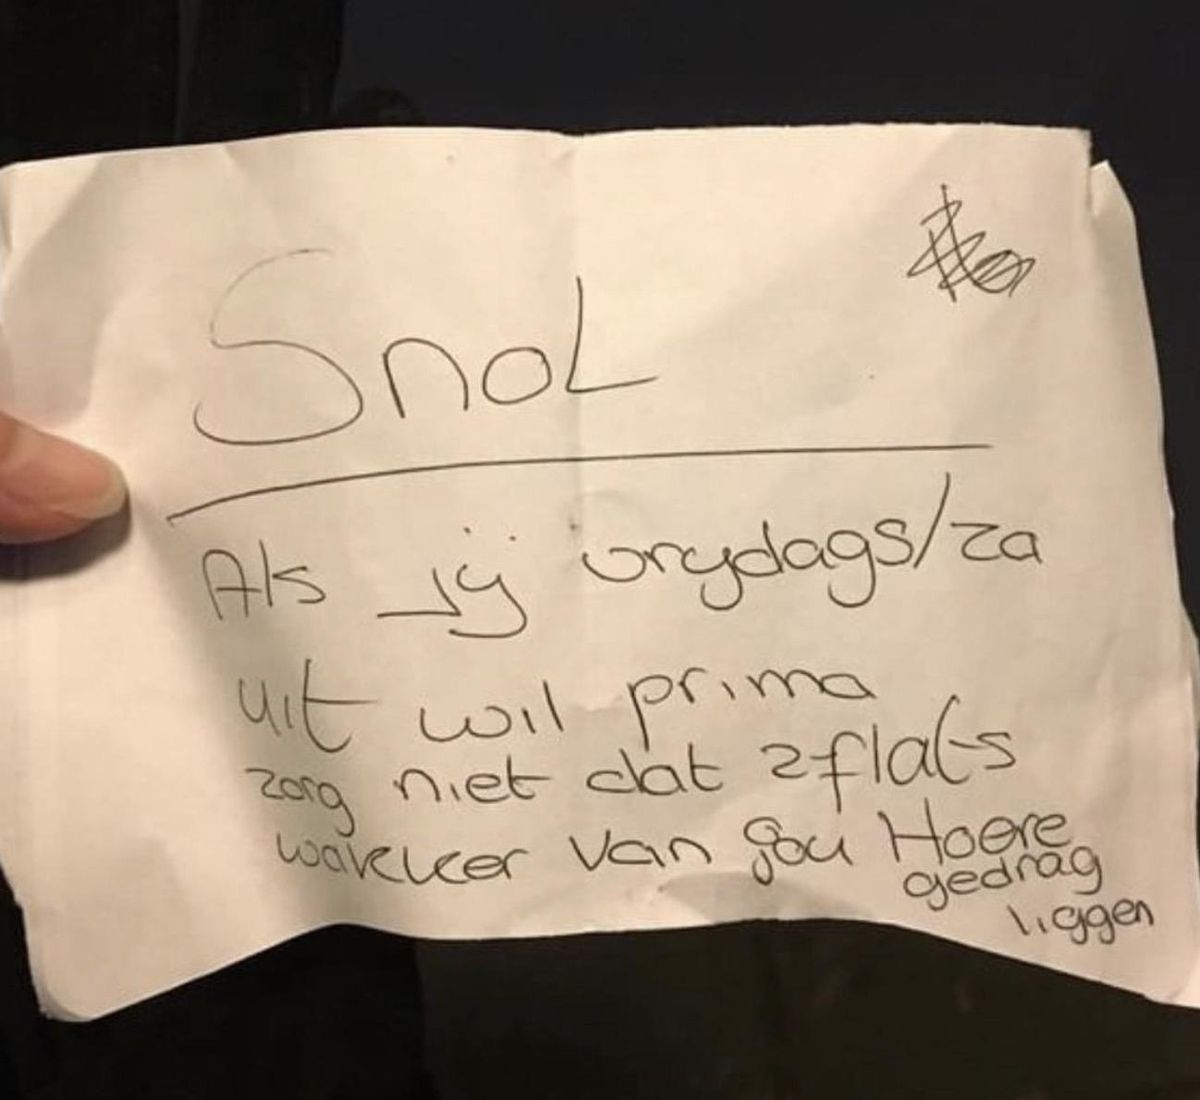 Snol
Als jij vrijdags/za
uit wil prima
zorg niet dat 2 flats
wakker van jou Hoere
gedrag
liggen